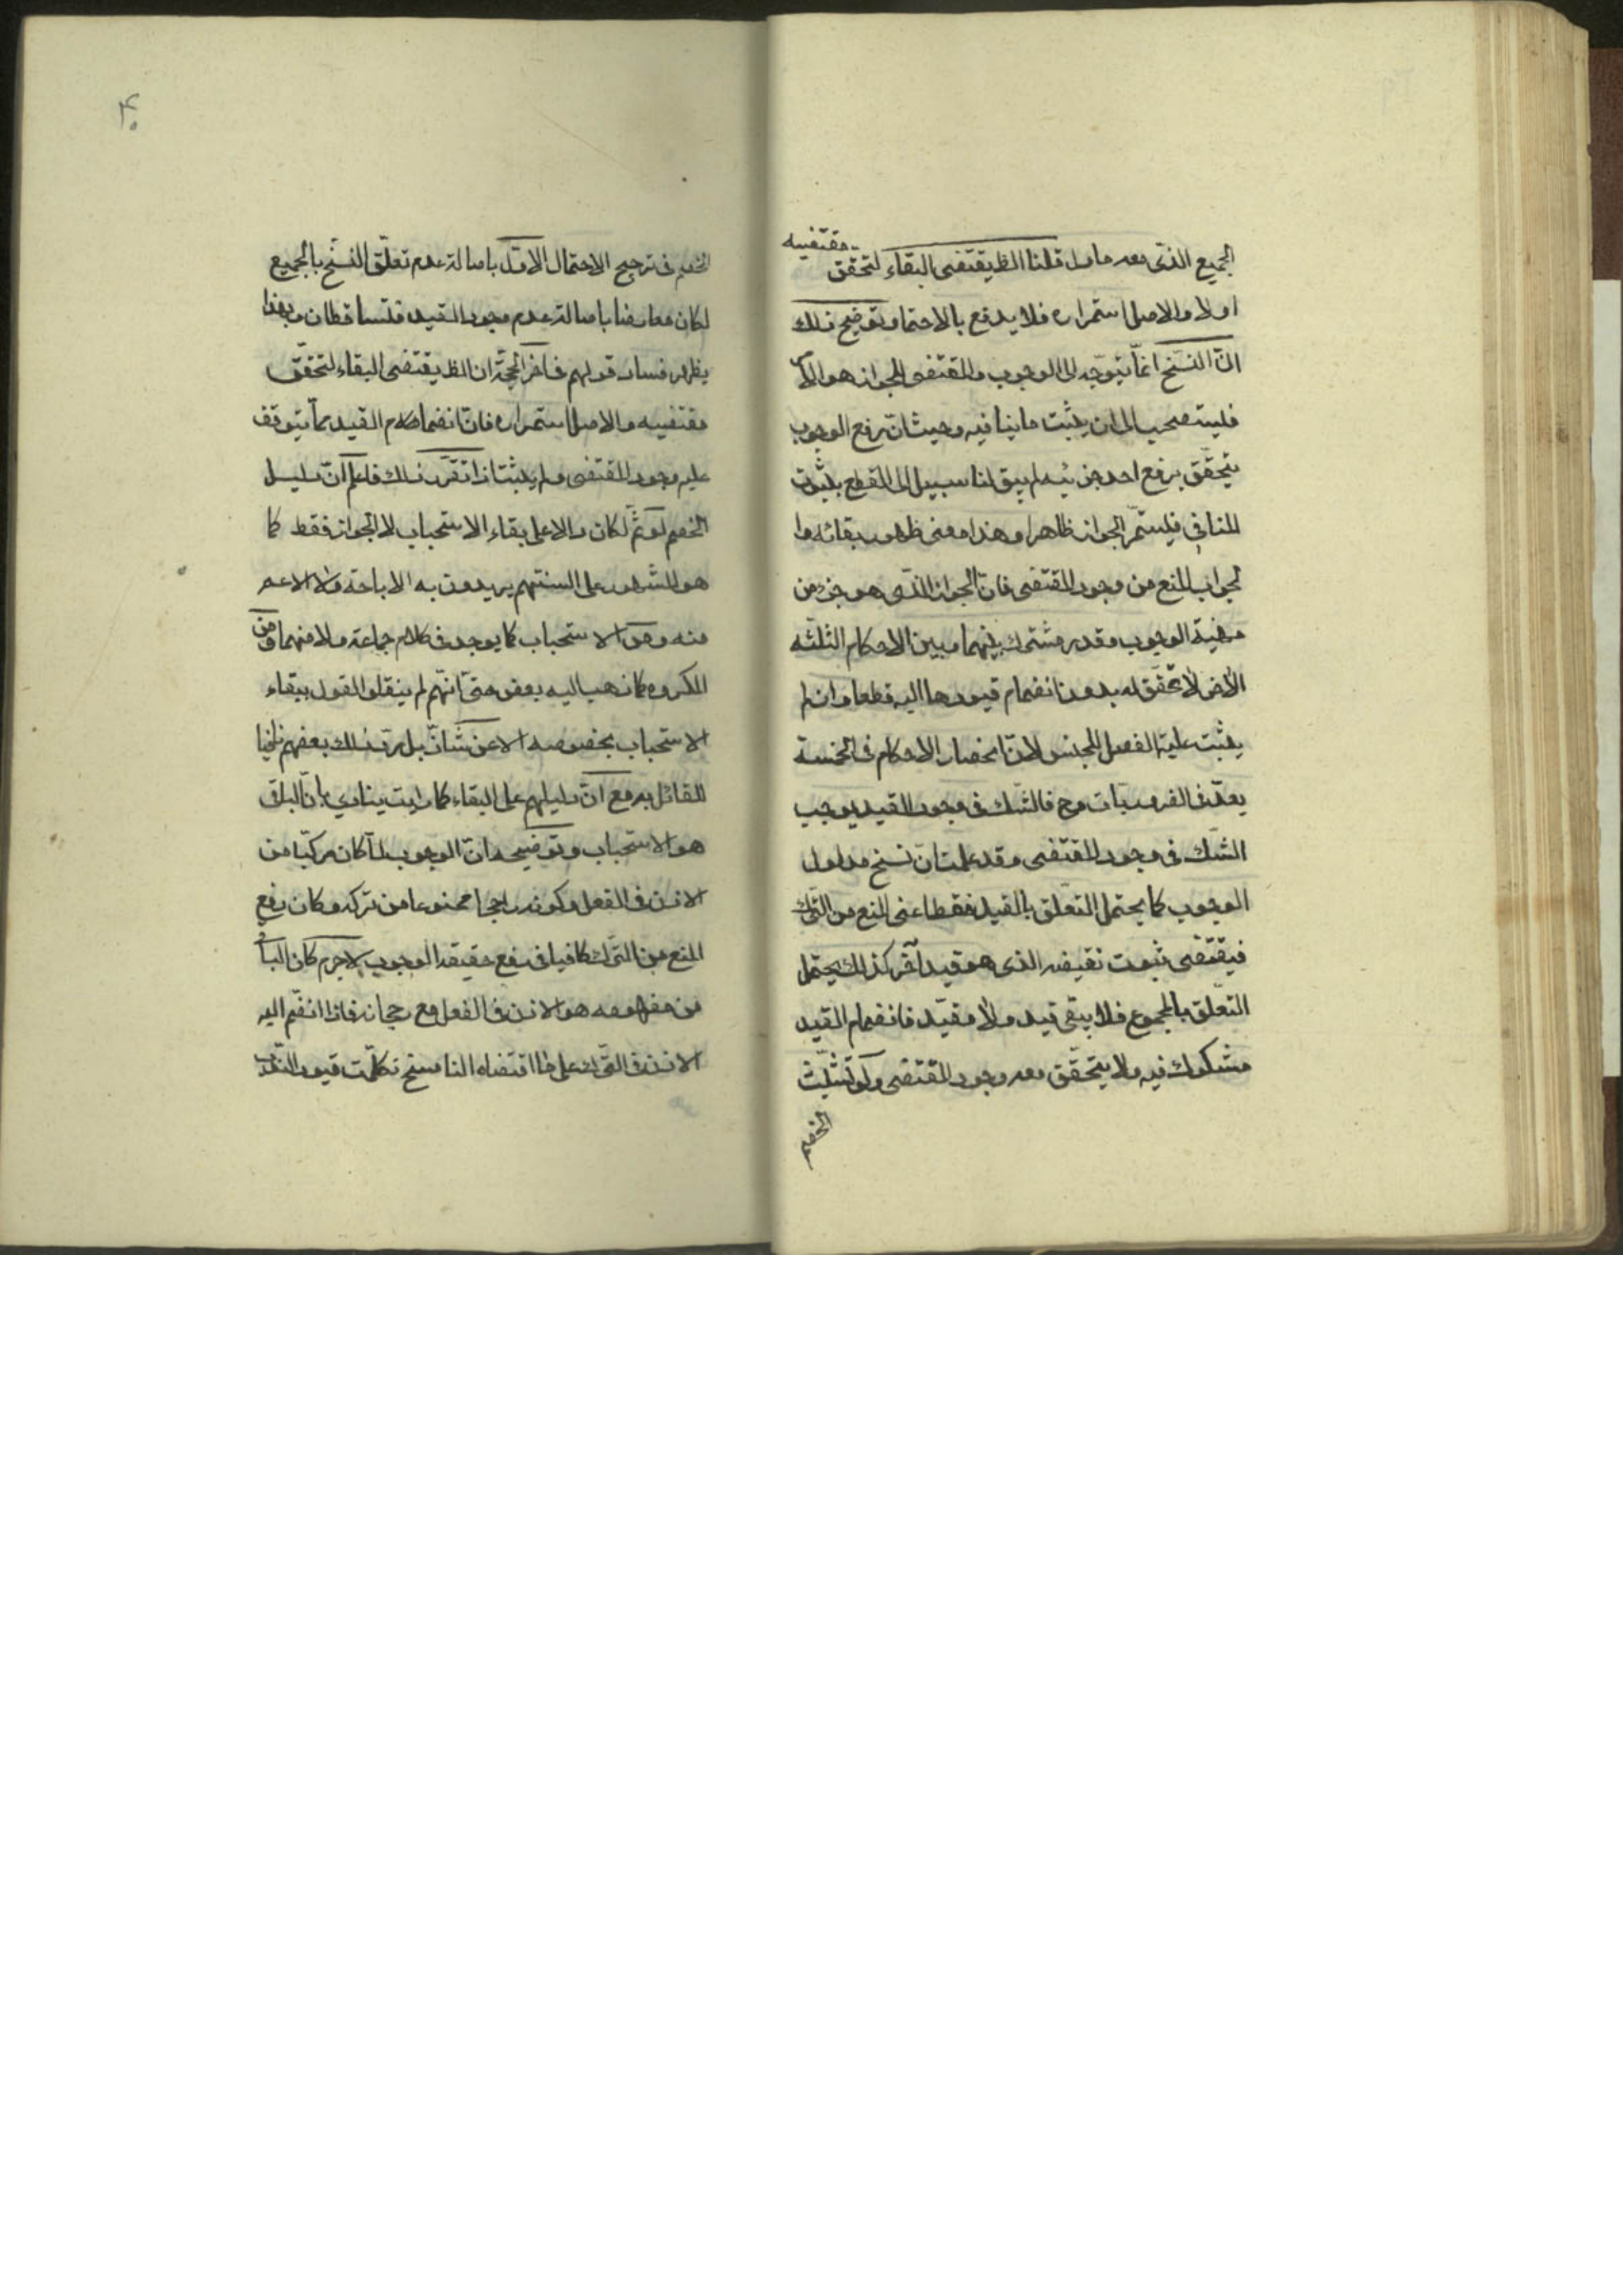 مقتضيه
الجميع الذى معه ما مل قلنا الظ يقتضى البقاء لتحقق
اولا والاصل استمراره فلا يدفع بالاحتما وتوضيح ذلك
انّ النسخ انّما يتوجّه الى الوجوب والمقتضى للجواز هو الأمر
فليستصحب الى ان يثبت ما ينافيه وحيث انّ رفع الوجوب
يتحقّق برفع احد جزئيه لم يبق لنا سبيل الى القطع بثبوت
المنافى فليستمّر الجواز ظاهرا وهذا معنى ظهور بقائه وا
لجواب المنع من وجود المقتضى فانّ الجواز الذى هو جزء من
مهيّة الوجوب وقدر مشترك بينهما وبين الاحكام الثلثه
الأخر لا تحقّق له بدون انضمام قيودها اليه قطعا وان لم
يثبت عليّة الفصل للجنس لانّ انحصار الاحكام فى الخمسة
يعدّ فى الضروريّات وح فالشّك فى وجود القيد يوجب
الشّك فى وجود المقتضى وقد علمت انّ نسخ مدلول
الوجوب كما يحتمل التعلّق بالقيد فقط اعنى المنع من التّرك
فيقتضى ثبوت نقيضه الذى هو قيد آخر كذلك يحتمل
التعلّق بالمجموع فلا يبقى قيد ولا مقيّد فانضمام القيد
مشكوك فيه ولا يتحقّق معه وجود المقتضى ولو تشبّث
الخصم
۴۰
الخصم فى ترجيح الاحتمال الاوّل باصالة عدم تعلّق النسخ بالجميع
لكان معارضا باصالة عدم وجود القيد فلتساقطان وبهذا
يظهر فساد قولهم فى اخر الحجّة ان الظ يقتضى البقاء لتحقّق
مقتضيه والاصل استمراره فانّ انضمام القيد ممّا يتوقف
عليه وجود المقتضى ولم يثبت اذا تقرّر ذلك فاعلم انّ دليل
الخصم لو تمّ لكان دالا على بقاء الاستحباب لا الجواز فقط كما
هو المشهور على السنتهم يريدون به الاباحة ولا الاعم
منه ومن الاستحباب كما يوجد فى كلام جماعة ولا منهما ومن
المكروه كما ذهب اليه بعض حتى انّهم لم ينقلوا القول ببقاء
الاستحباب بخصوصه الا عن شاذّ بل ردّ ذلك بعضهم نافيا
للقائل به مع انّ دليلهم على البقاء كما رايت ينادى بانّ الباقى
هو الاستحباب وتوضيحه انّ الوجوب لمّا كان مركّبا من
الاذن فى الفعل وكونه راجحا ممنوعا من تركه وكان رفع
المنع من التّرك كافيا فى رفع حقيقة الوجوب لاجرم كان الباقى
من مفهومه هو الاذن فى الفعل مع رجحانه فاذا انضّم اليه
الاذن فى التّرك على ما اقتضاه الناسخ تكلّمت قيود النّدب